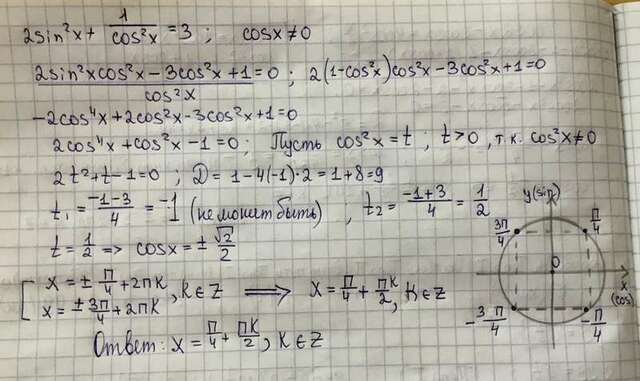 2sin²x + 1/cos²x = 3 ; cosx ≠ 0
(2sin²xcos²x − 3cos²x + 1)/cos²x = 0 ; 2(1−cos²x)cos²x − 3cos²x + 1 = 0
−2cos⁴x + 2cos²x − 3cos²x + 1 = 0
2cos⁴x + cos²x − 1 = 0 ; Пусть cos²x = t ; t > 0 , т.к. cos²x ≠ 0
2t² + t − 1 = 0 ; D = 1 − 4(−1)·2 = 1 + 8 = 9
t₁ = (−1−3)/4 = −1 (не может быть) , t₂ = (−1+3)/4 = 1/2
t = 1/2 => cosx = ± √2/2
[ x = ± π/4 + 2πk
x = ± 3π/4 + 2πk , k ∈ Z ⟹ x = π/4 + πk/2 , k ∈ Z
Ответ: x = π/4 + πk/2 , k ∈ Z
y(sin)
3π/4
π/4
0
x
(cos)
−3π/4
−π/4